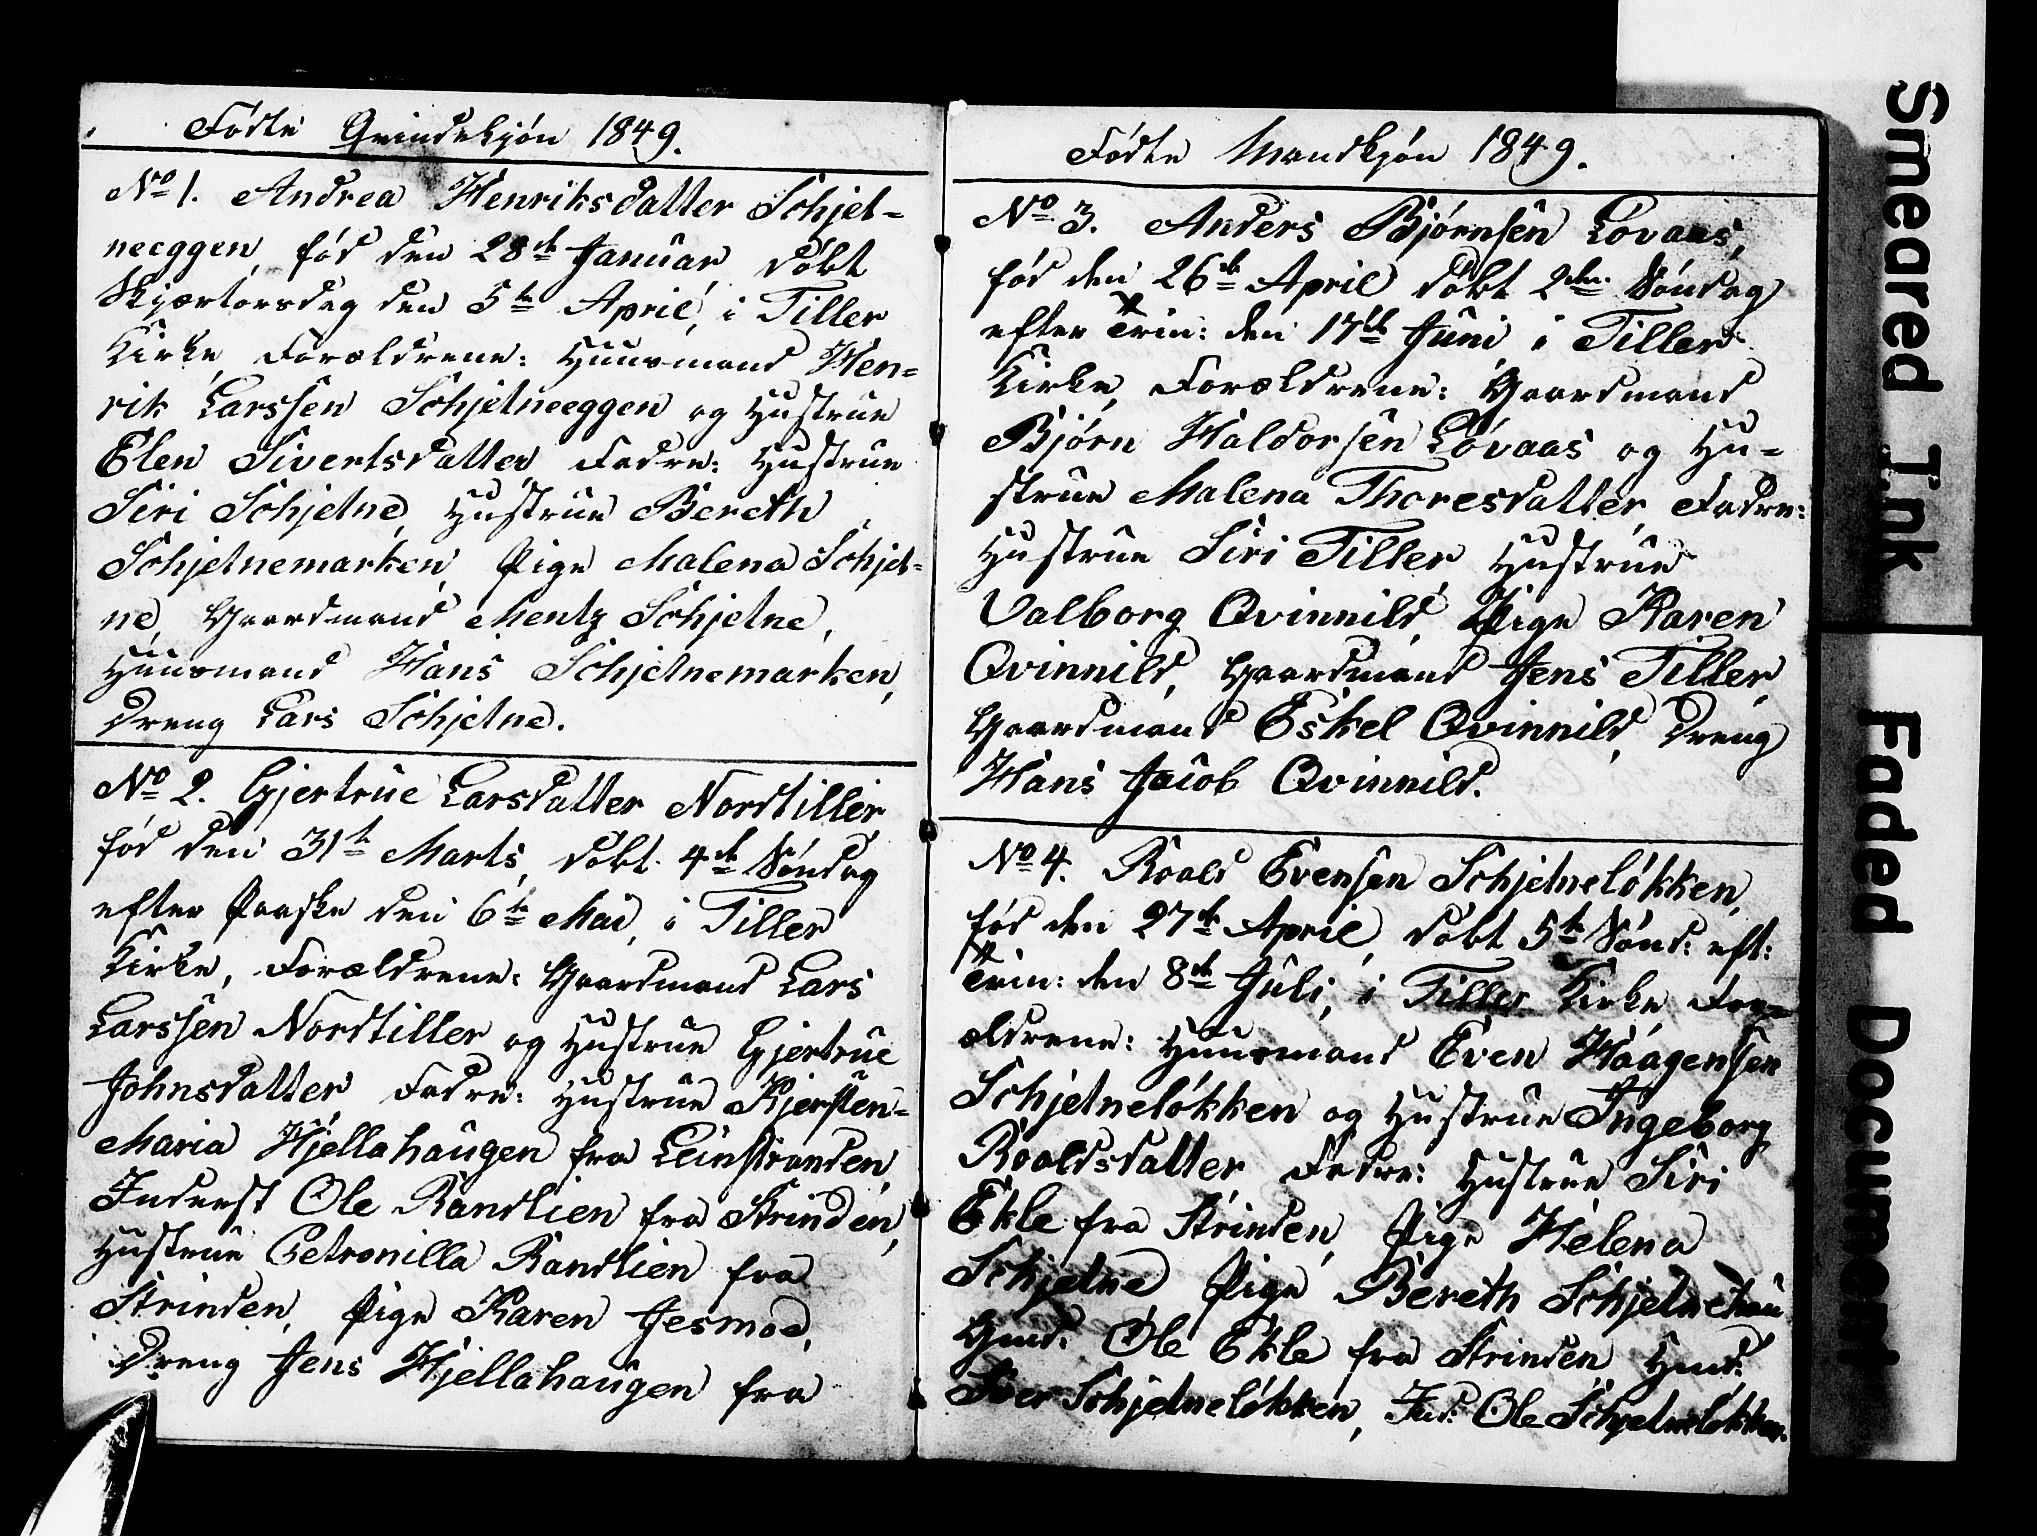 Fødte Qvindekjøn 1849.
No 1. Andrea Henriksdatter Schjet-
neeggen, fød den 28de Januar, døbt
Skjærtorsdag den 5te April, i Tiller
Kirke, Forældrene: Huusmand Hen-
rik Larssen Schjetneeggen og Hustrue
Elen Sivertsdatter Fadre: Hustrue
Siri Schjetne, Hustrue Bereth
Schjetnemarken, Pige Malena Schjet-
ne, Gaardmand Mentz Schjetne,
Huusmand Hans Schjetnemarken,
Dreng Lars Schjetne.
No 2. Gjertrue Larsdatter Nordtiller
fød den 31te Marts, døbt 4de Søndag
efter Paaske den 6te Mai, i Tiller
Kirke, Forældrene: Gaardmand Lars
Larssen Nordtiller og Hustrue Gjertrue
Johnsdatter Fadre: Hustrue Kjersten-
Maria Hjellahaugen fra Leinstranden,
Inderst Ole Randlien fra Strinden,
Hustrue Petronilla Randlien fra
Strinden, Pige Karen Jesmoe,
Dreng Jens Hjellahaugen fra
Fødte Mandkjøn 1849.
No 3. Anders Bjørnsen Løvaas,
fød den 26de April, døbt 2den Søndag
efter Trin: den 17de Juni i Tiller
Kirke, Forældrene: Gaardmand
Bjørn Haldorsen Løvaas og Hu-
strue Malena Thoresdatter Fadre:
Hustrue Siri Tiller Hustrue
Valborg Qvinnild, Pige Karen
Qvinnild, Gaardmand Jens Tiller,
Gaardmand Eskel Qvinnild, Dreng
Hans Jacob Qvinnild.
No 4. Roald Evensen Schjetneløkken,
fød den 27de April, døbt 5te Sønd: eft:
Trin: den 8de Juli, i Tiller Kirke For-
ældrene: Huusmand Even Haagensen
Schjetneløkken og Hustrue Ingeborg
Roaldsdatter Fadre: Hustrue Siri
Ekle fra Strinden, Pige Helena
Schjetne Pige Bereth Schjetnehau
Gmd: Ole Ekle fra Strinden, Hmd:
Iver Schjetneløkken, Ind: Ole Schjetneløkken.
Smeared Ink
Faded Document